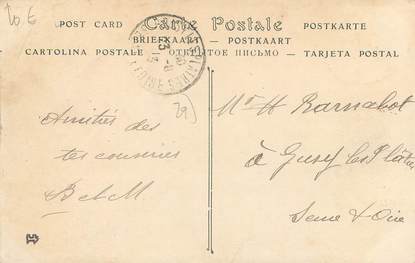 10 E
POST CARD Carte Postale POSTKARTE
BRIEFKAART — POSTKAART
CARTOLINA POSTALE — ОТКРЫТОЕ ПИСЬМО — TARJETA POSTAL
29
Amitiés des
tes cousines
B et M
Mr H
à Gusy les Plâtre
Seine & Oise